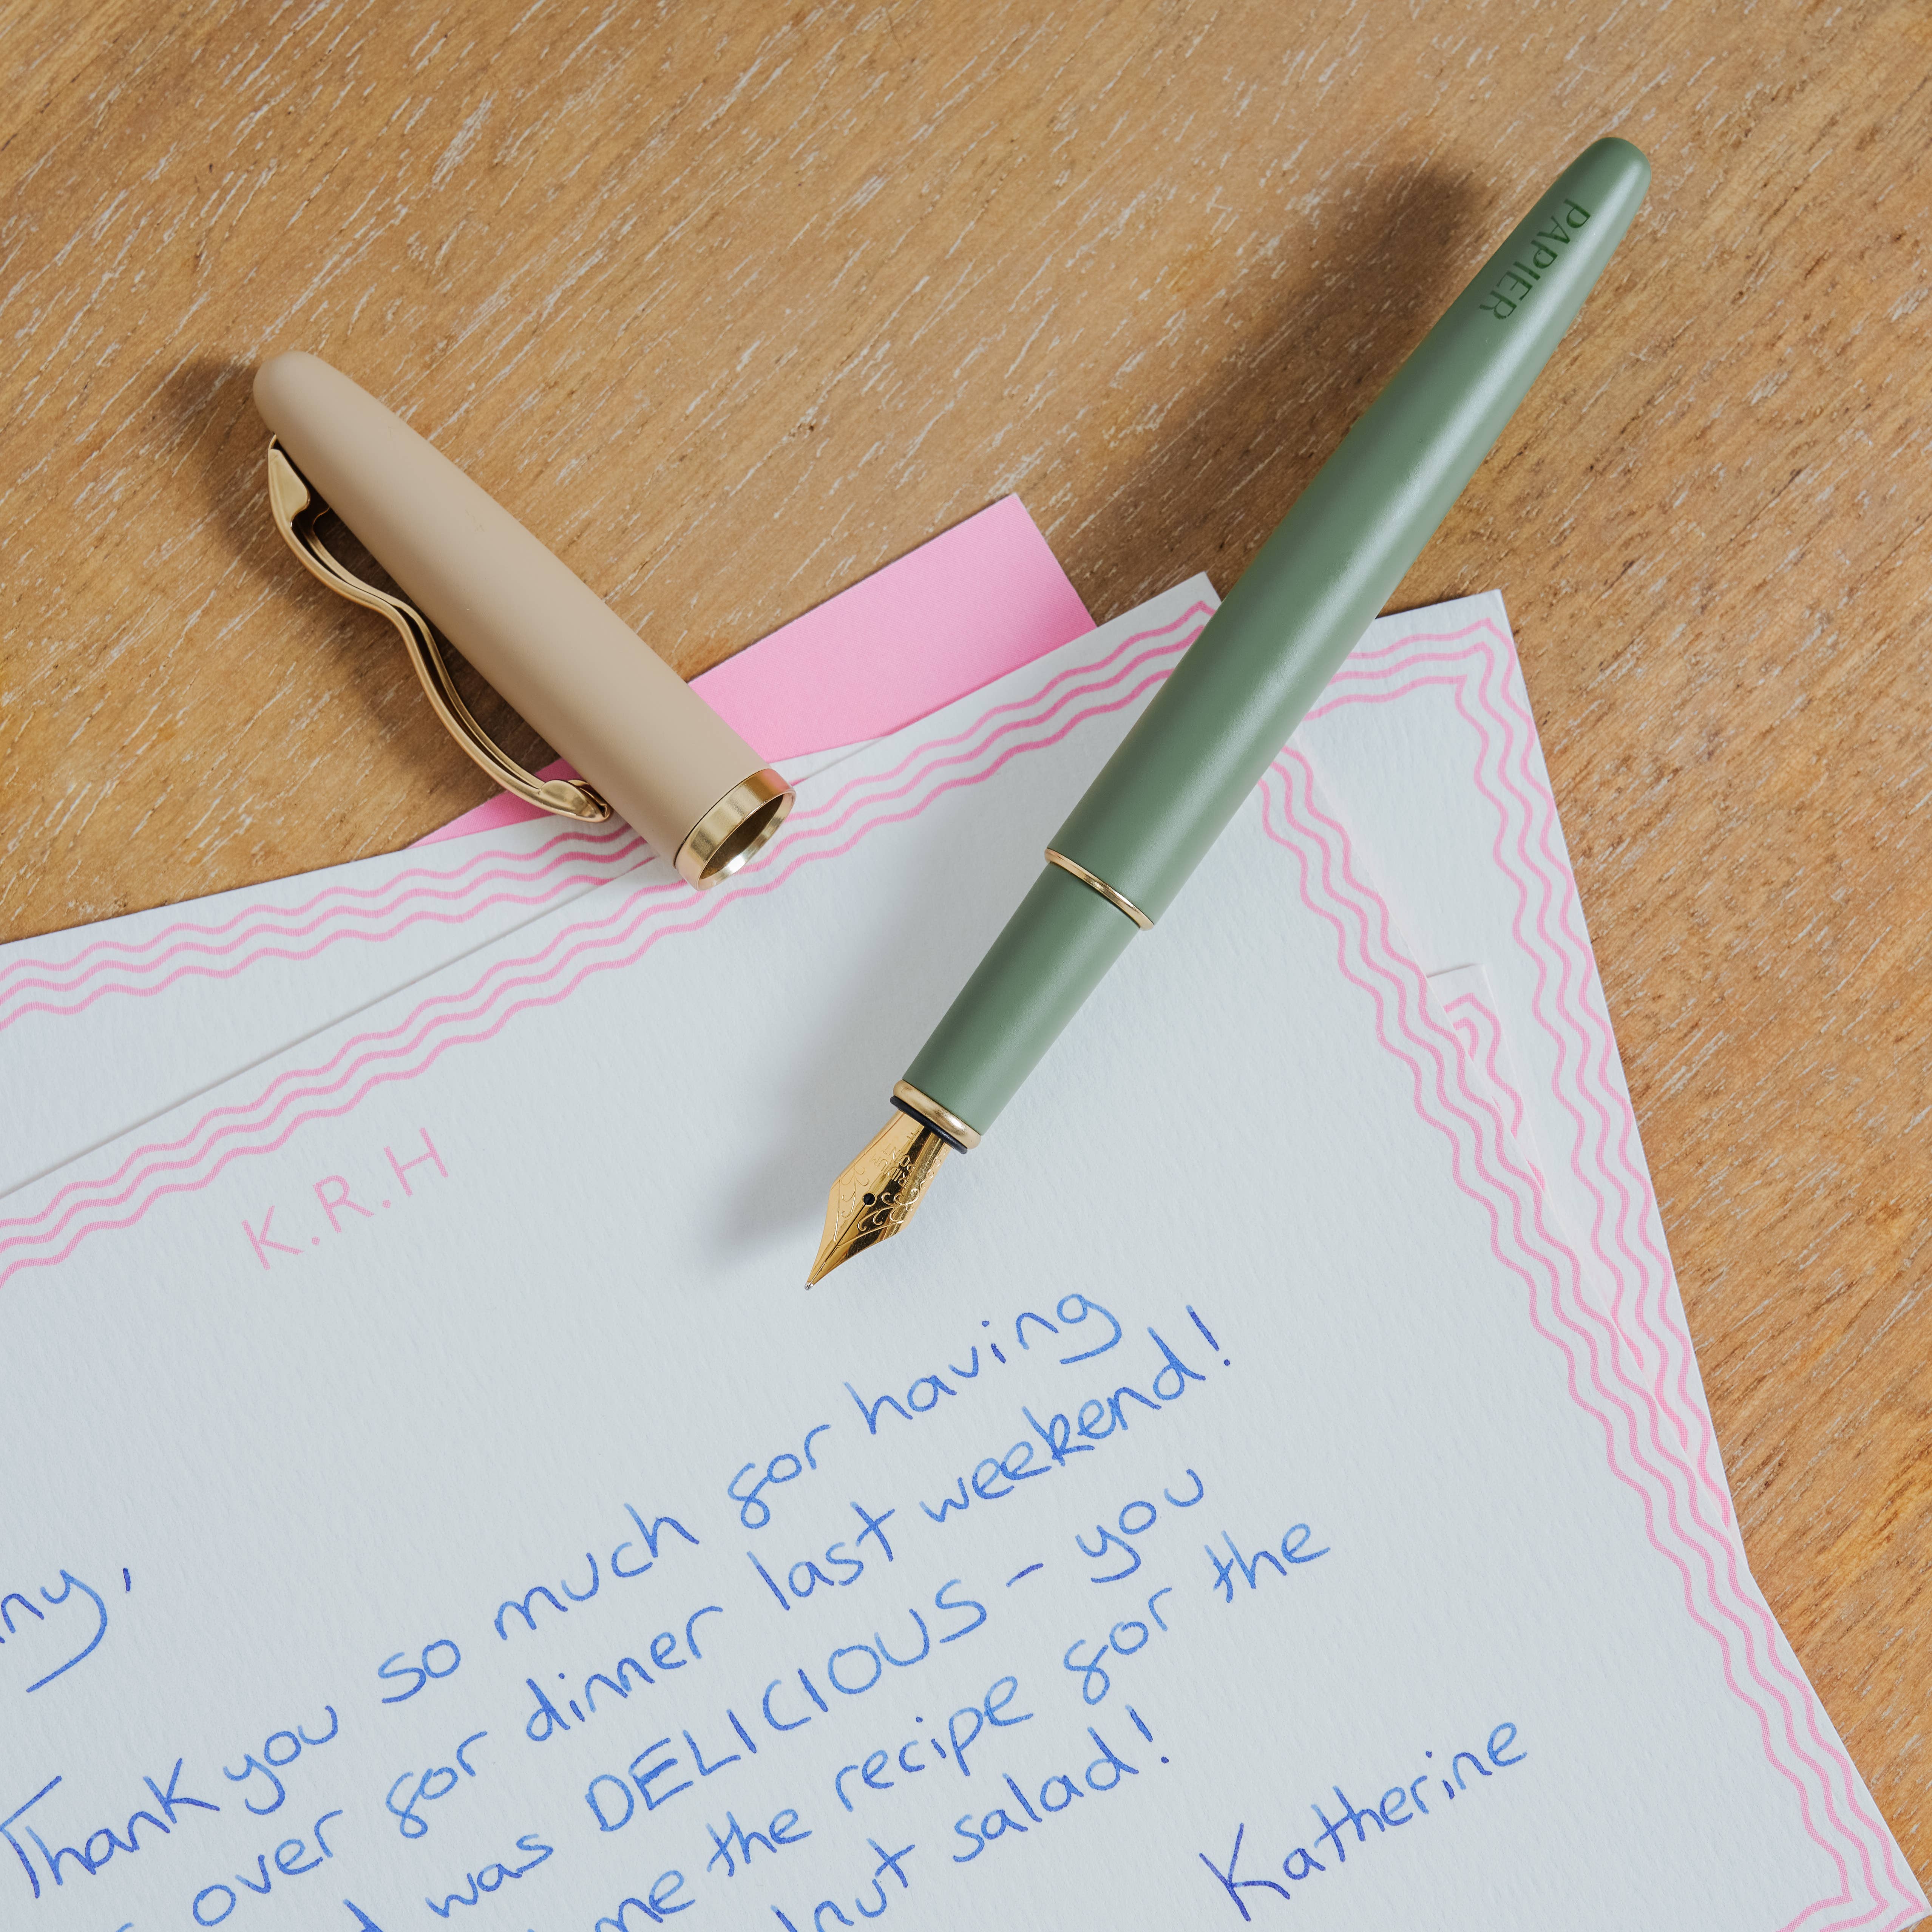 PAPIER
K.R.H
Thank you so much for having
over for dinner last weekend!
was DELICIOUS - you
me the recipe for the
salad!
Katherine